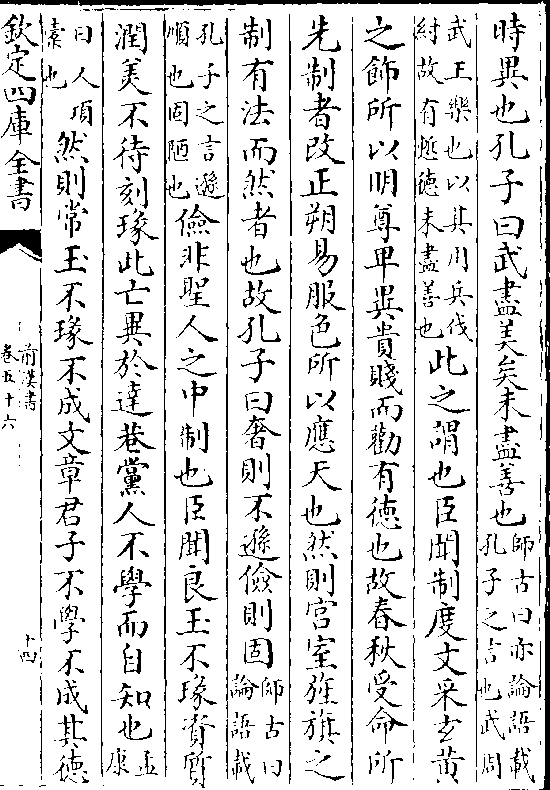 時異也孔子曰武盡美矣未盡善也師古曰亦論語載孔子之言也武周
武王樂也以其用兵伐紂故有慙德未盡善也此之謂也臣聞制度文采玄黃
之飾所以明尊卑異貴賤而勸有徳也故春秋受命所
先制者改正朔易服色所以應天也然則宫室旌旗之
制有法而然者也故孔子曰奢則不遜儉則固師古曰論語載
孔子之言遜順也固陋也儉非聖人之中制也臣聞良玉不瑑資質
潤美不待刻瑑此亡異於達巷黨人不學而自知也孟康
曰人項橐也然則常玉不瑑不成文章君子不學不成其徳
欽定四庫全書
前漢書
卷五十六
十四